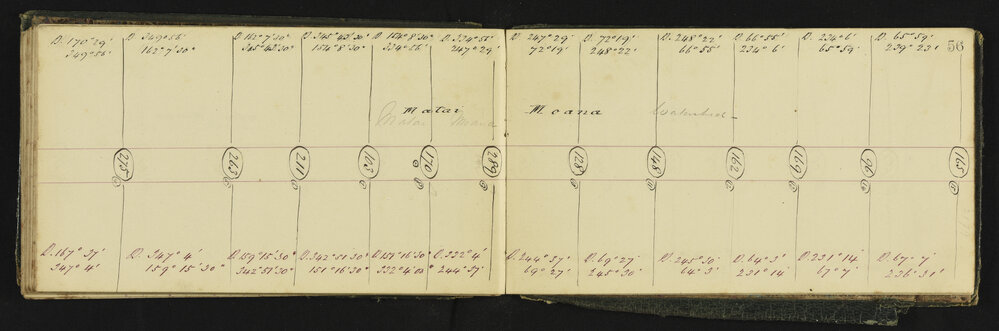 D. 170° 29' D. 349° 56' D. 162° 7' 30" D. 345° 43' 30" D. 154° 8' 30" D. 334° 56' D. 247° 29' D. 72° 19' D. 248° 22' D. 66° 55' D. 234° 6' D. 65° 59'
349° 56' 162° 7' 30" 345° 43' 30" 154° 8' 30" 334° 56' 247° 29' 72° 19' 248° 22' 66° 55' 234° 6' 65° 59' 239° 23' 56
Matai Moana Watershed
Matai Moana
275 263 211 103 170 289 128 148 162 169 96 165
D. 167° 37' D. 347° 4' D. 159° 15' 30" D. 342° 51' 30" D. 151° 16' 30" D. 332° 4' D. 244° 37' D. 69° 27' D. 245° 30' D. 64° 3' D. 231° 14' D. 67° 7'
347° 4' 159° 15' 30" 342° 51' 30" 151° 16' 30" 332° 4' 244° 37' 69° 27' 245° 30' 64° 3' 231° 14' 67° 7' 236° 31'